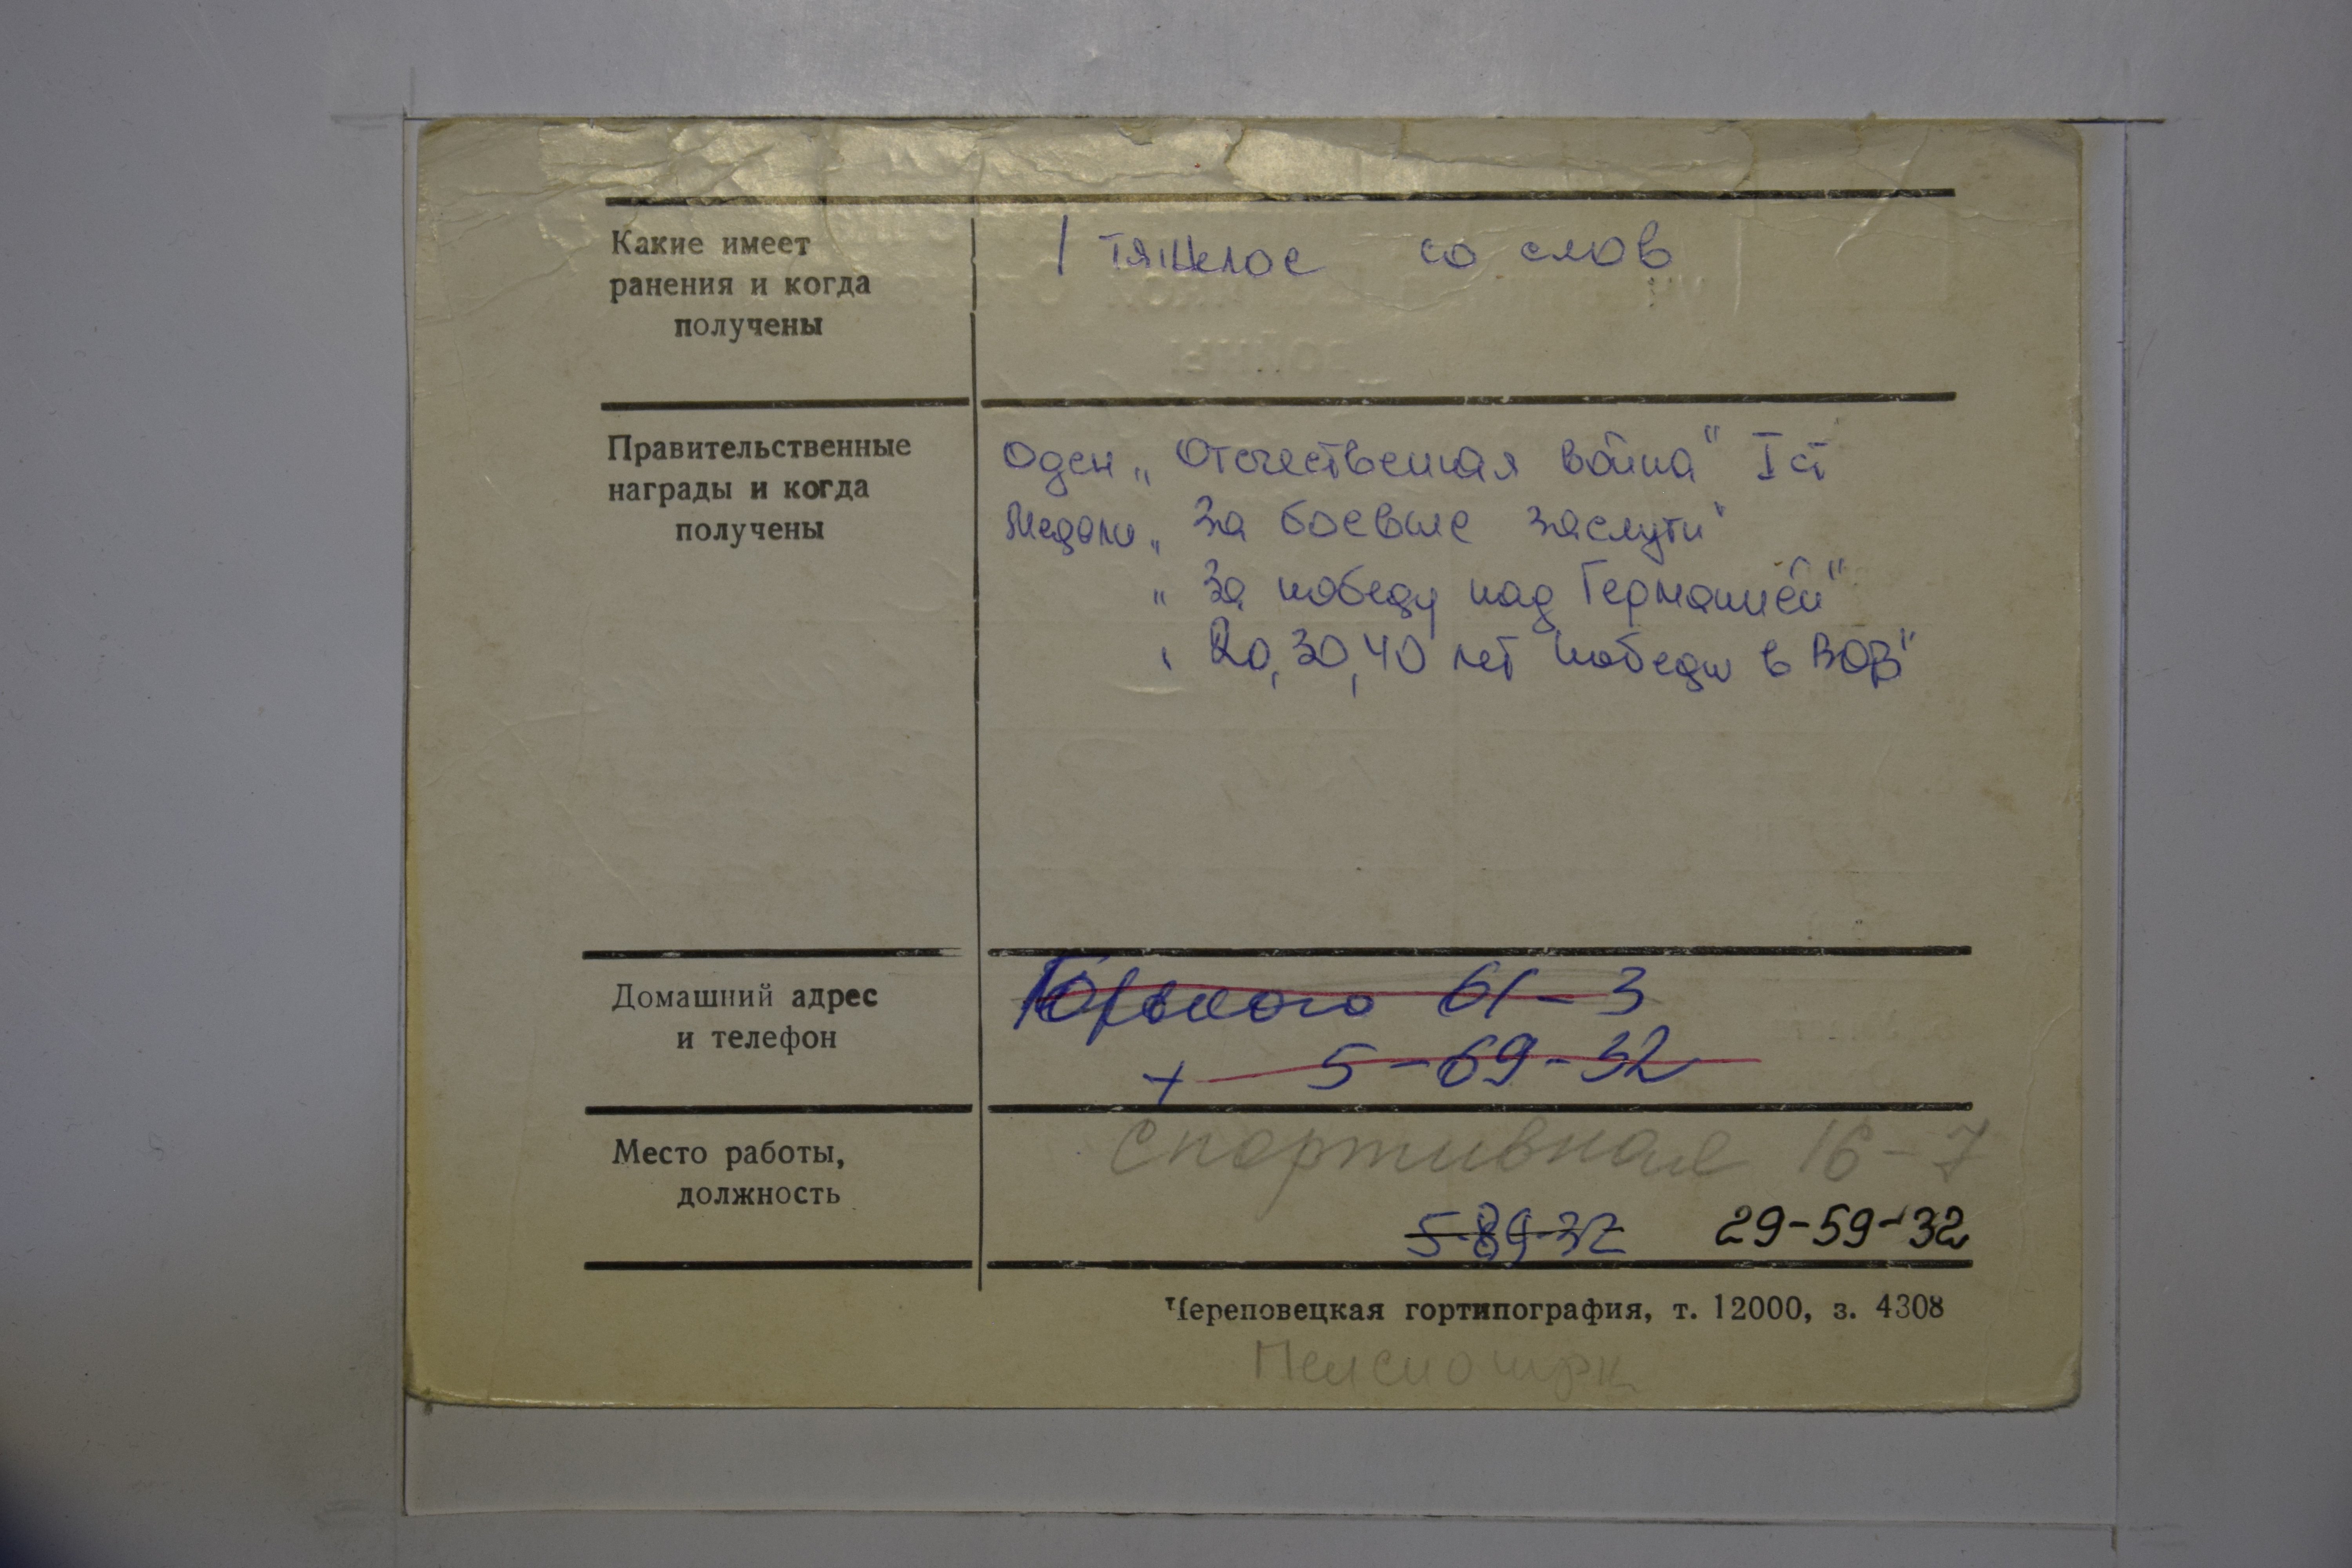 Какие имеет
ранения и когда
получены
1 тяжелое со слов
Правительственные
награды и когда
получены
Оден „Отечественная война" I ст
Медали „За боевые заслуги"
„За победу над Германией"
„20, 30, 40 лет победы в ВОВ"
Домашний адрес
и телефон
Горького 61-3
+ 5-69-32
Место работы,
должность
Спортивная 16-7
5-89-32 29-59-32
Череповецкая гортипография, т. 12000, з. 4308
Пенсионерк